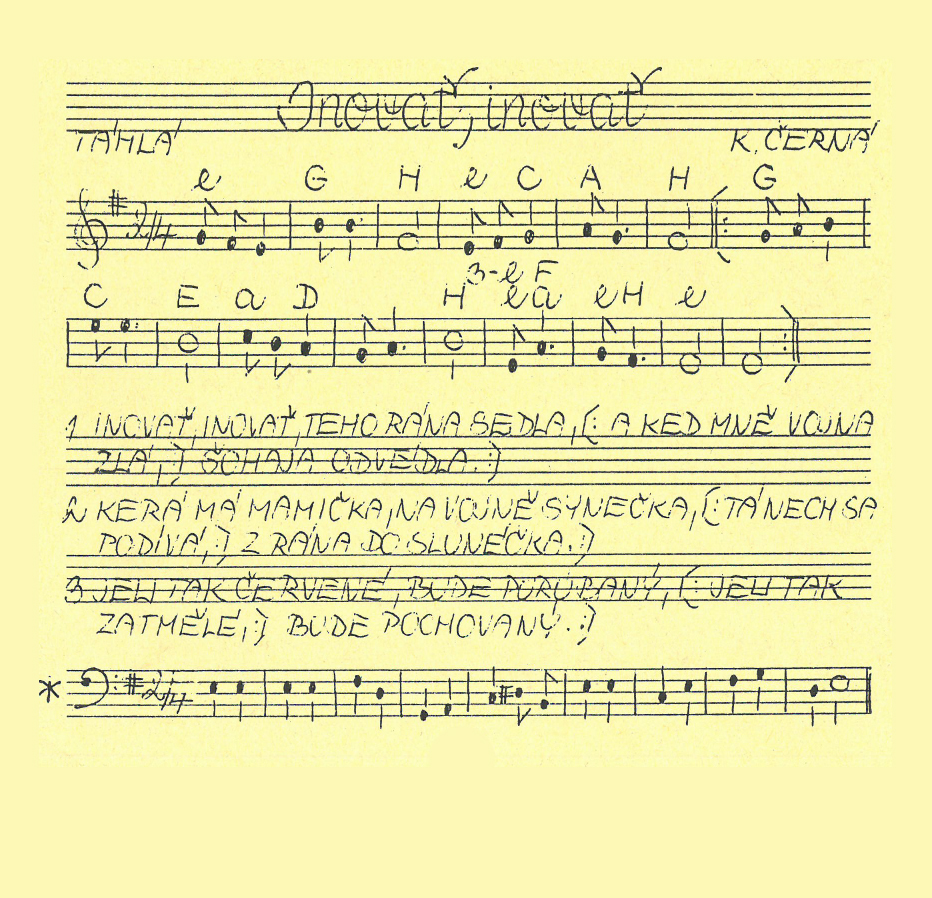 Inovať, inovať
TÁHLÁ K. ČERNÁ
e G H e C A H G
3-e F
C E a D H e a e H e
1 INOVAŤ, INOVAŤ, TEHO RÁNA SEDLA, (: A KED MNĚ VOJNA
ZLÁ, :) ŠOHAJA ODVÉDLA. :)
2 KERÁ MÁ MAMIČKA, NA VOJNĚ SYNEČKA, (: TÁ NECH SA
PODÍVÁ, :) Z RÁNA DO SLUNÉČKA. :)
3 JELI TAK ČERVENÉ, BUDE PORÚBANÝ, (: JELI TAK
ZATMĚLÉ, :) BUDE POCHOVANÝ. :)